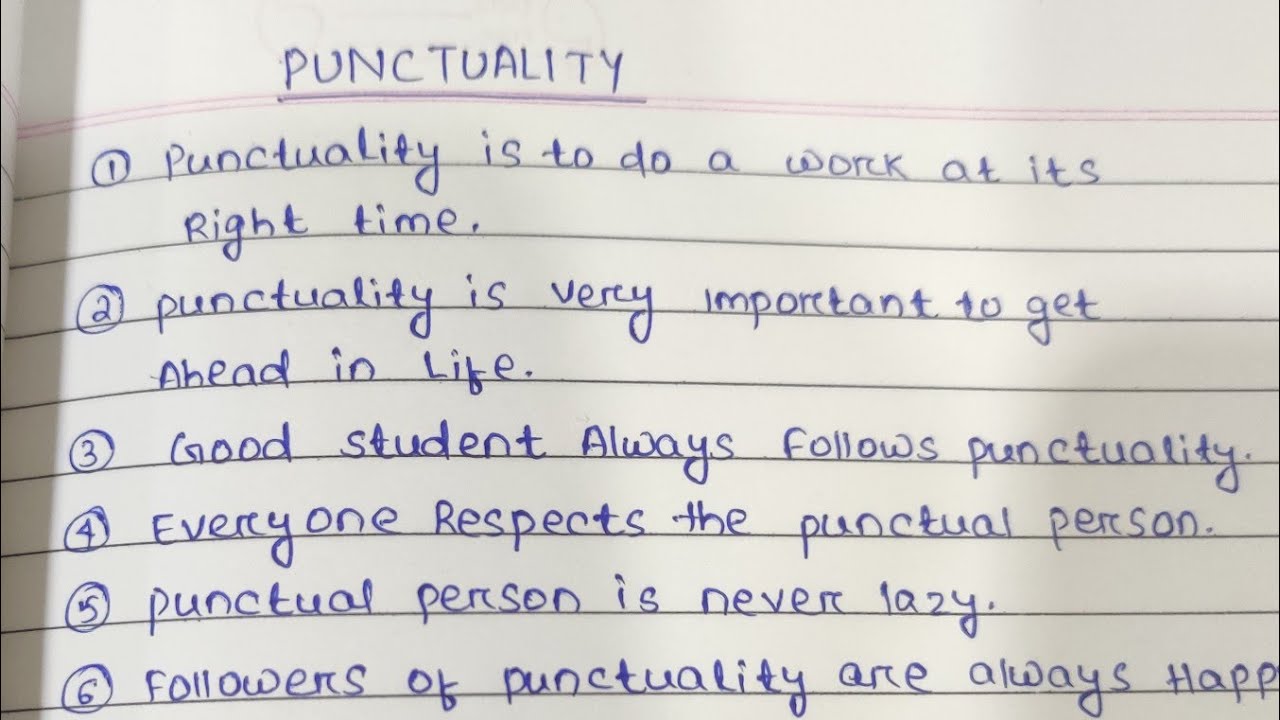 PUNCTUALITY
① Punctuality is to do a work at its
Right time.
② punctuality is very important to get
Ahead in Life.
③ Good student Always follows punctuality.
④ Everyone Respects the punctual person.
⑤ punctual person is never lazy.
⑥ followers of punctuality are always Happ